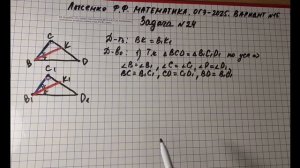 Лысенко Ф.Ф. МАТЕМАТИКА. ОГЭ-2025. ВАРИАНТ №15
Задача №24
Д-ть: BK = B₁K₁
Д-во: 1) Т.к. △BCD = △B₁C₁D₁ по усл ⇒
∠B = ∠B₁, ∠C = ∠C₁, ∠D = ∠D₁
BC = B₁C₁, CD = C₁D₁, BD = B₁D₁
C
K
B
D
C₁
K₁
B₁
D₁